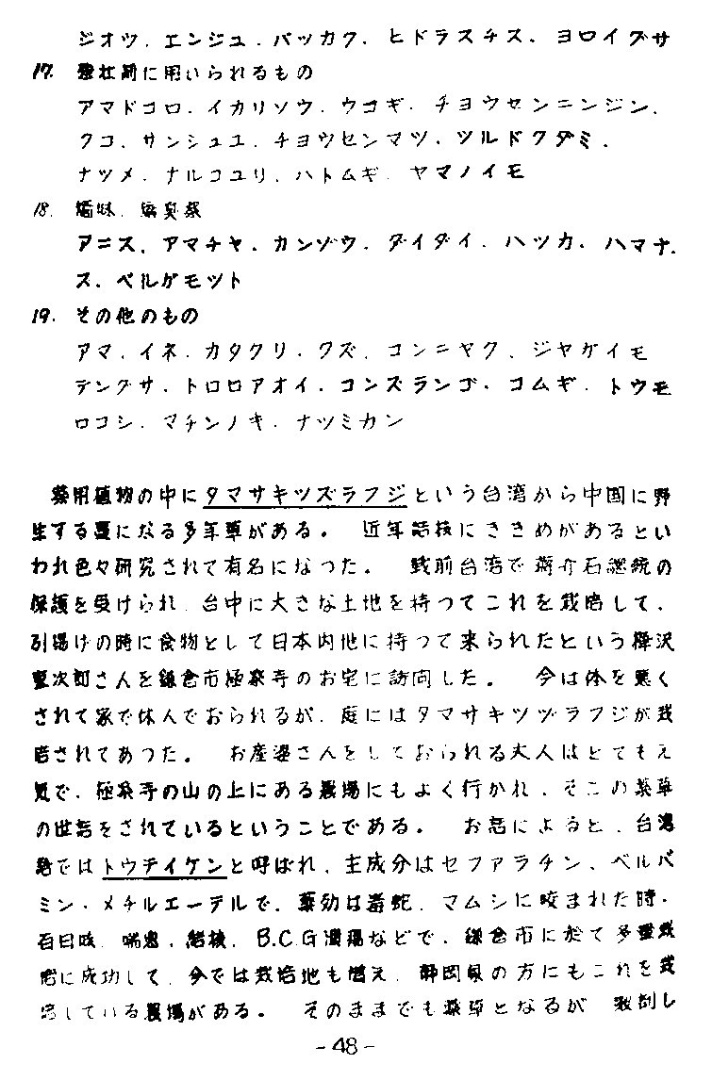 ジオウ、エンジユ、バッカク、ヒドラスチス、ヨロイグサ
17. 強壮剤に用いられるもの
アマドコロ、イカリソウ、ウコギ、チョウセンニンジン、
クコ、サンシュユ、チョウセンマツ、ツルドクダミ、
ナツメ、ナルコユリ、ハトムギ、ヤマノイモ
18. 矯味、矯臭薬
アニス、アマチヤ、カンゾウ、ダイダイ、ハツカ、ハマナ
ス、ベルガモツト
19. その他のもの
アマ、イネ、カタクリ、クズ、コンニヤク、ジヤガイモ
テングサ、トロロアオイ、コンズランゴ、コムギ、トウモ
ロコシ、マチンノキ、ナツミカン
薬用植物の中にタマサキツズラフジという台湾から中国に野
生する蔓になる多年草がある。 近年結核にききめがあるとい
われ色々研究されて有名になつた。 戦前台湾で蒋介石総統の
保護を受けられ、台中に大きな土地を持つてこれを栽培して、
引揚げの時に食物として日本内地に持つて来られたという樺沢
次郎さんを鎌倉市極楽寺のお宅に訪問した。 今は体を悪く
されて家で休んでおられるが、庭にはタマサキツヅラフジが栽
培されてあつた。 お産婆さんをしておられる夫人はとても元
気で、極楽寺の山の上にある農場にもよく行かれ、そこの薬草
の世話をされているということである。 お話によると、台湾
語ではトウチイケンと呼ばれ、主成分はセフアラチン、ベルバ
ミン・メチルエーテルで、薬効は毒蛇、マムシに咬まれた時、
百日咳、喘息、結核、B.C.G潰瘍などで、鎌倉市に於て多量栽
培に成功して、今では栽培地も増え、静岡県の方にもこれを栽
培している農場がある。 そのままでも薬草となるが 製剤し
-48-